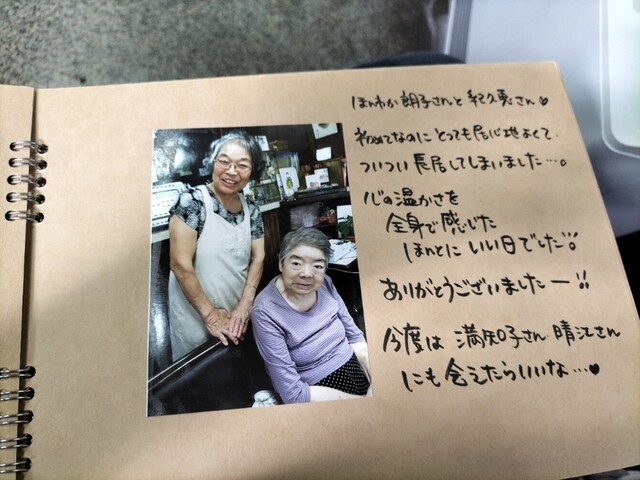 ほんわか 朗子さんと 紀久恵さん♥
初めてなのに とっても居心地よくて、
ついつい 長居してしまいました…。
心の温かさを
全身で感じた
ほんとに いい日でした!!
ありがとうございましたー!!
今度は 満知子さん 晴江さん
にも会えたらいいな…♥